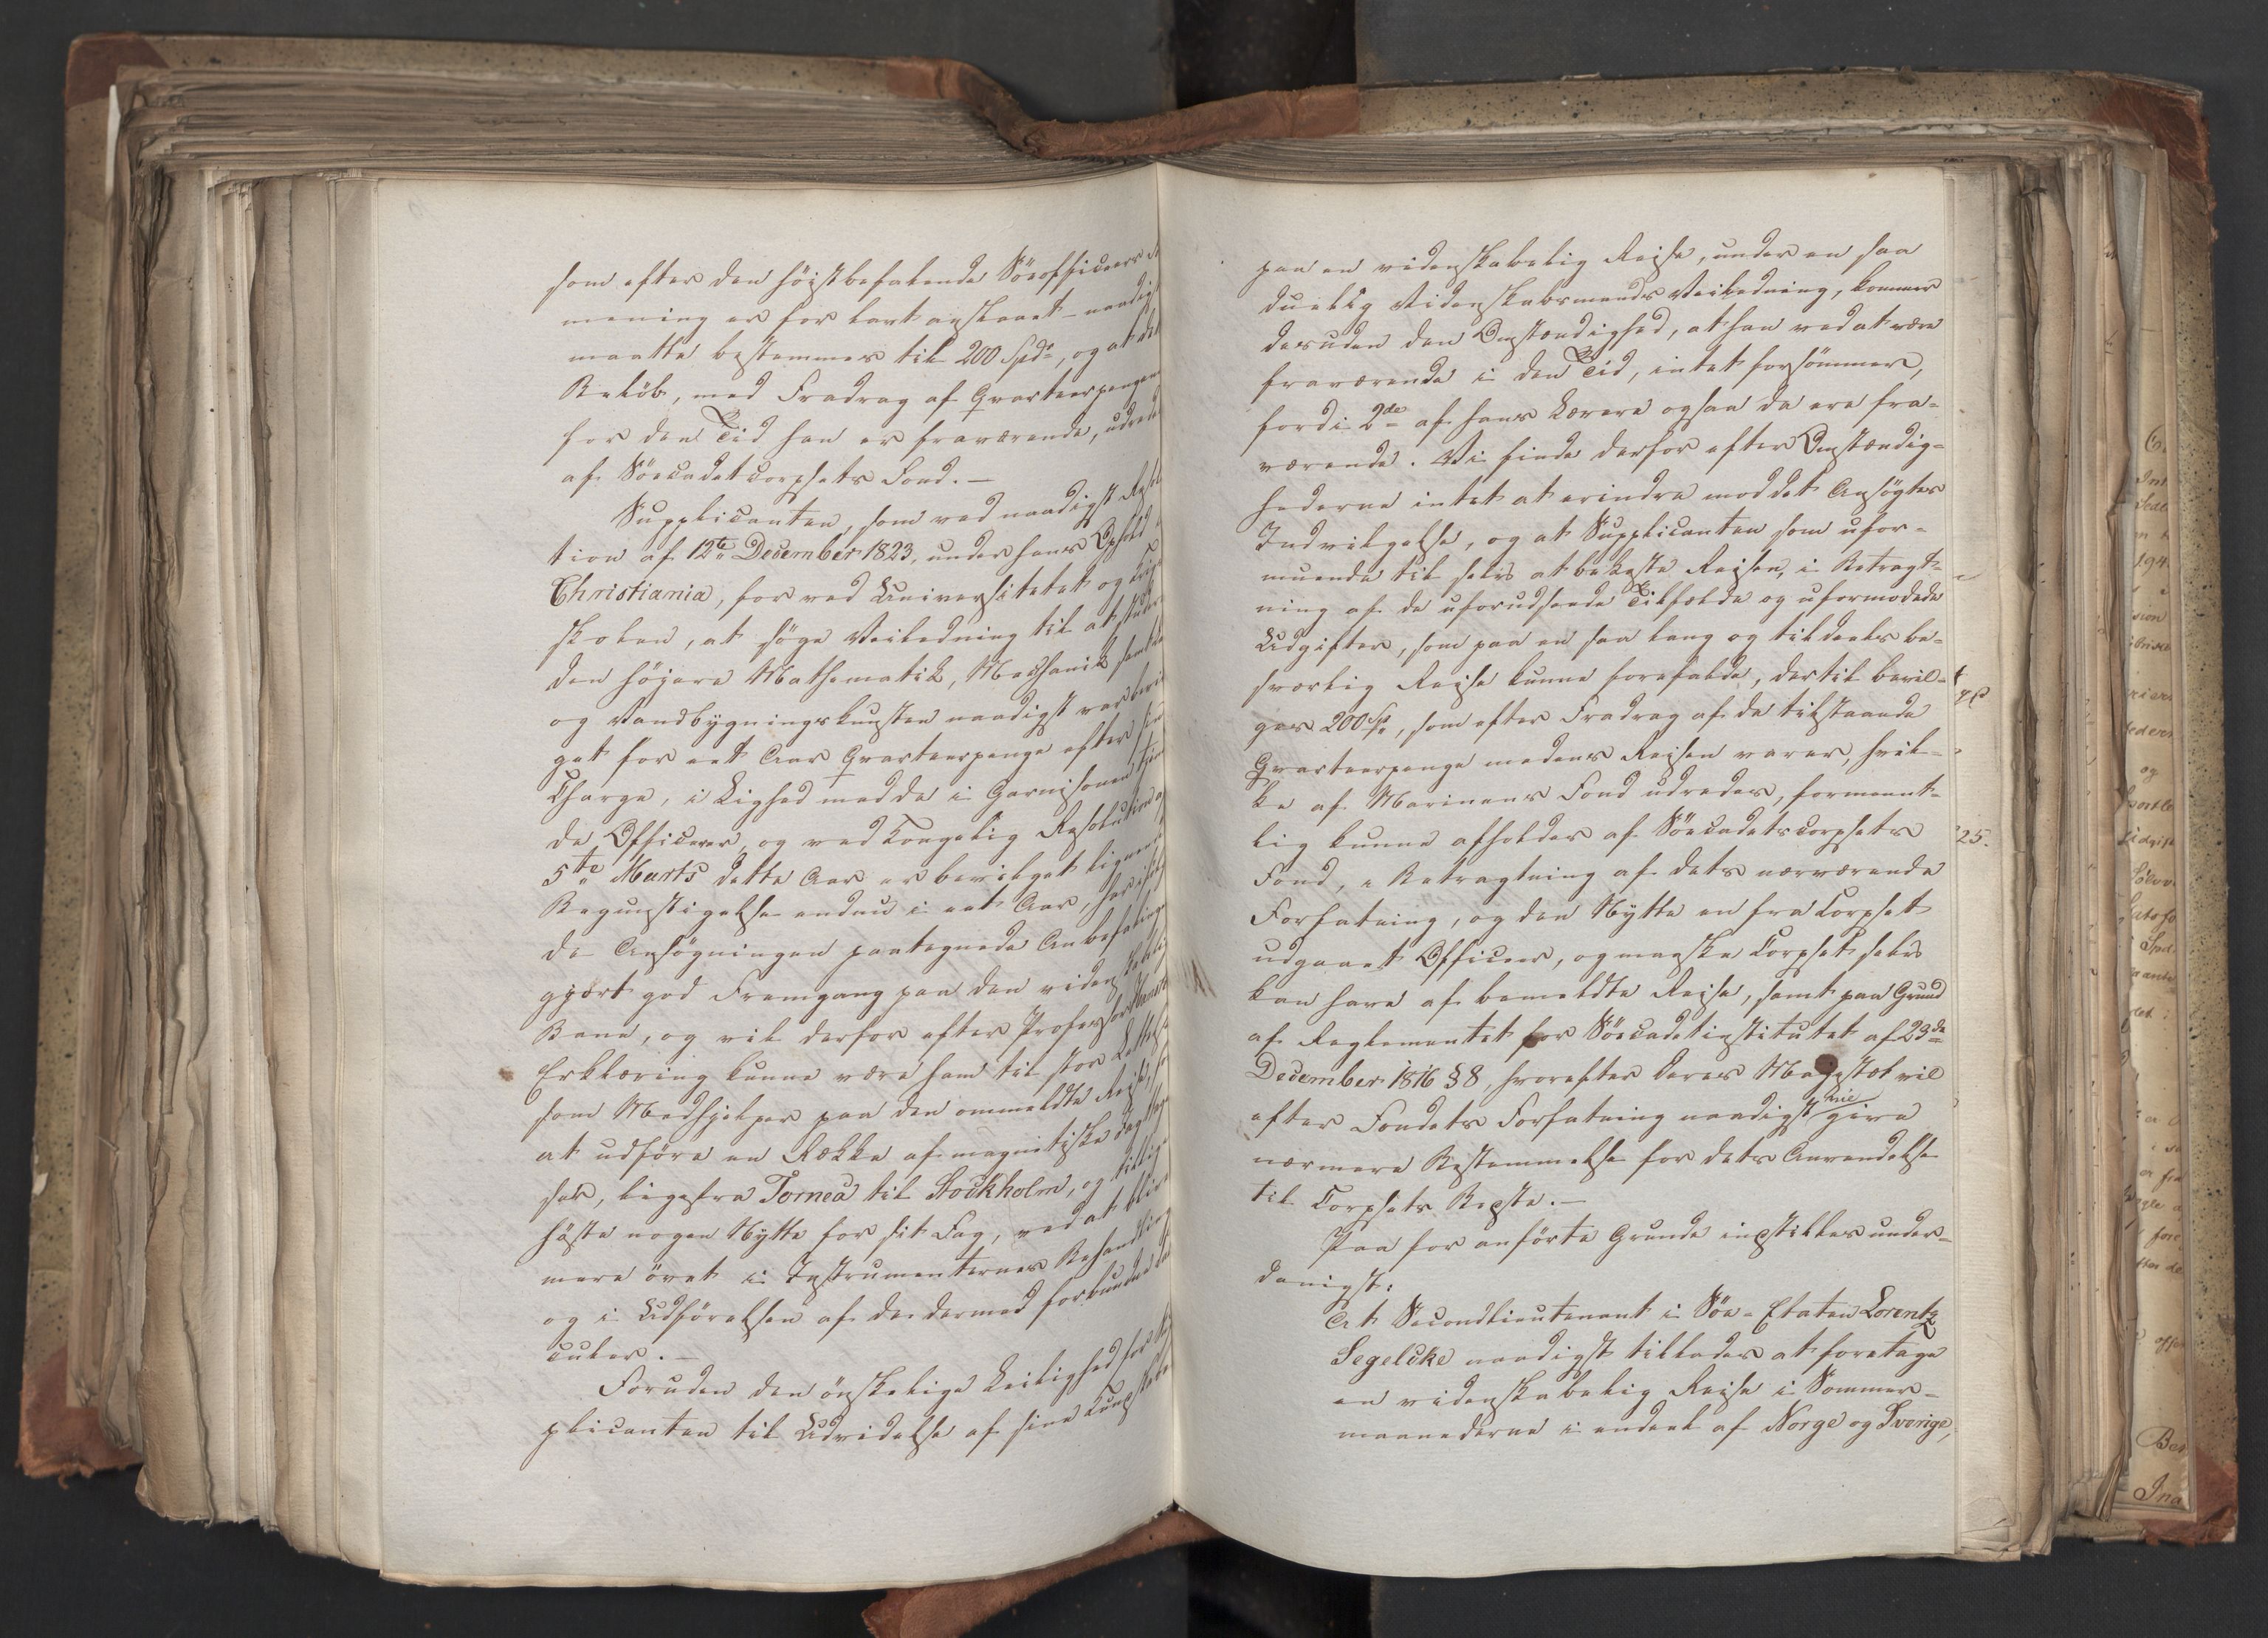 som efter den høistbefalende Söeofficeers
mening er for lavt anslaaet - naadigst
maatte bestemmes til 200 Spdr, og at det
Beløb, med Fradrag af Qvarteerpengene
for den Tid han er fraværende, udredes
af Söecadetcorpsets Fond. —
Supplicanten, som ved naadigst Resolu
tion af 12te December 1823, under hans Ophold i
Christiania, for ved Universitetet og Krigs
skolen, at søge Veiledning til at studere
den høiere Mathematik, Mechanik samt
og Vandbygningskunsten naadigst var bevil
get for eet Aar Qvarteerpenge efter sin
Charge, i Lighed med de i Garnisonen tjenen
de Officerer, og ved Kongelig Resolution af
5te Marts dette Aar er bevilget lignende
Begunstigelse endnu i eet Aar, har ifølge
de Ansøgningen paategnede Anbefalinger
gjort god Fremgang paa den videnskabelige
Bane, og vil derfor efter Professor Hansteens
Erklæring kunne være ham til stor Lettelse
som Medhjelper paa den ommeldte Reise, for
at udføre en Række af magnetiske Iagttagel
ser, ligefra Torneå til Stockholm, og tillige
høste nogen Nytte for sit Fag, ved at blive
mere övet i Instrumenternes Behandling
og i Udførelsen af de dermed forbundne Cal
culer. —
Foruden den ønskelige Leilighed for Sup
plicanten til Udvidelse af sine Kundskaber
paa en videnskabelig Reise, under en saa
duelig Videnskabsmands Veiledning, kommer
desuden den Omstændighed, at han ved at være
fraværende i den Tid, intet forsømmer,
fordi 2de af hans Lærere ogsaa da ere fra-
værende. Vi finde derfor efter Omstændig-
hederne intet at erindre mod det Ansøgtes
Indvilgelse, og at Supplicanten som ufor-
muende til selv at bekoste Reisen, i Betragt-
ning af de uforudseede Tilfælde og uformodede
Udgifter, som paa en saa lang og tildeels be-
sværlig Reise kunne forefalde, dertil bevil-
ges 200 Sp, som efter Fradrag af de tilstaaede
Qvarteerpenge medens Reisen varer, hvil-
ke af Marinens Fond udredes, formeent-
lig kunne afholdes af Söecadetcorpsets
Fond, i Betragtning af dets nærværende
Forfatning, og den Nytte en fra Corpset
udgaaet Officeer, og maaske Corpset selv
kan have af bemeldte Reise, samt paa Grund
af Reglementet for Söecadetinstitutet af 23de
December 1816 § 8, hvorefter Deres Majestæt vil
efter Fondets Forfatning naadigst give
nærmere Bestemmelse for dets Anvendelse
til Corpsets Bedste. —
Paa for anførte Grunde indstilles under-
danigst:
At Secondlieutenant i Söe-Etaten Lorentz
Segelcke naadigst tillades at foretage
en videnskabelig Reise i Sommer-
maanederne i endeel af Norge og Sverige,
25.